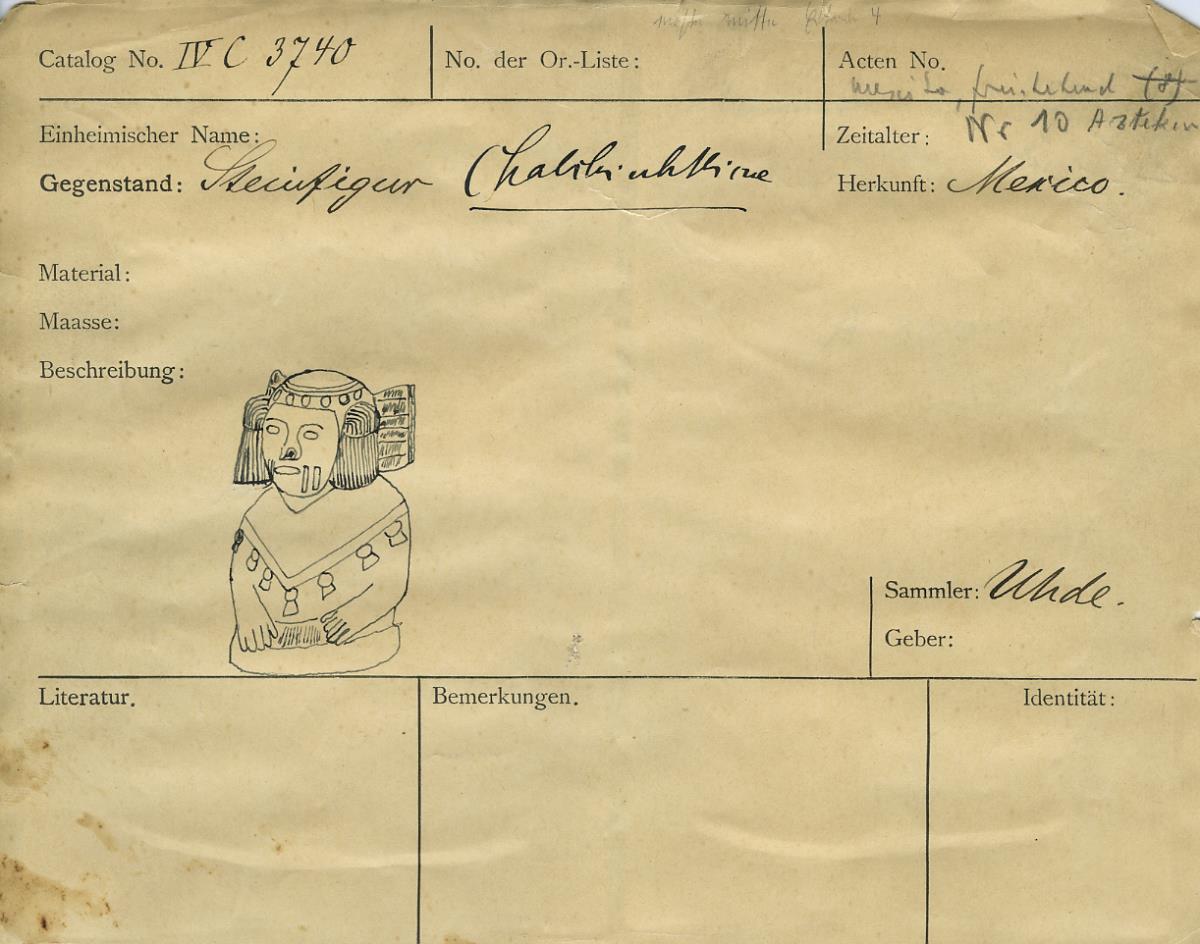 Catalog No. IV C 3740
No. der Or.-Liste:
Acten No.
Einheimischer Name:
Zeitalter: Nr 10 Azteken
Gegenstand: Steinfigur Chalchiuhtlicue
Herkunft: Mexico.
Material:
Maasse:
Beschreibung:
Sammler: Uhde.
Geber:
Literatur.
Bemerkungen.
Identität: